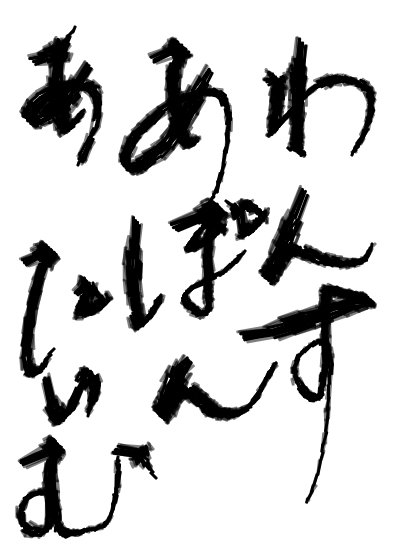 わんす
あぽん
あたいむ